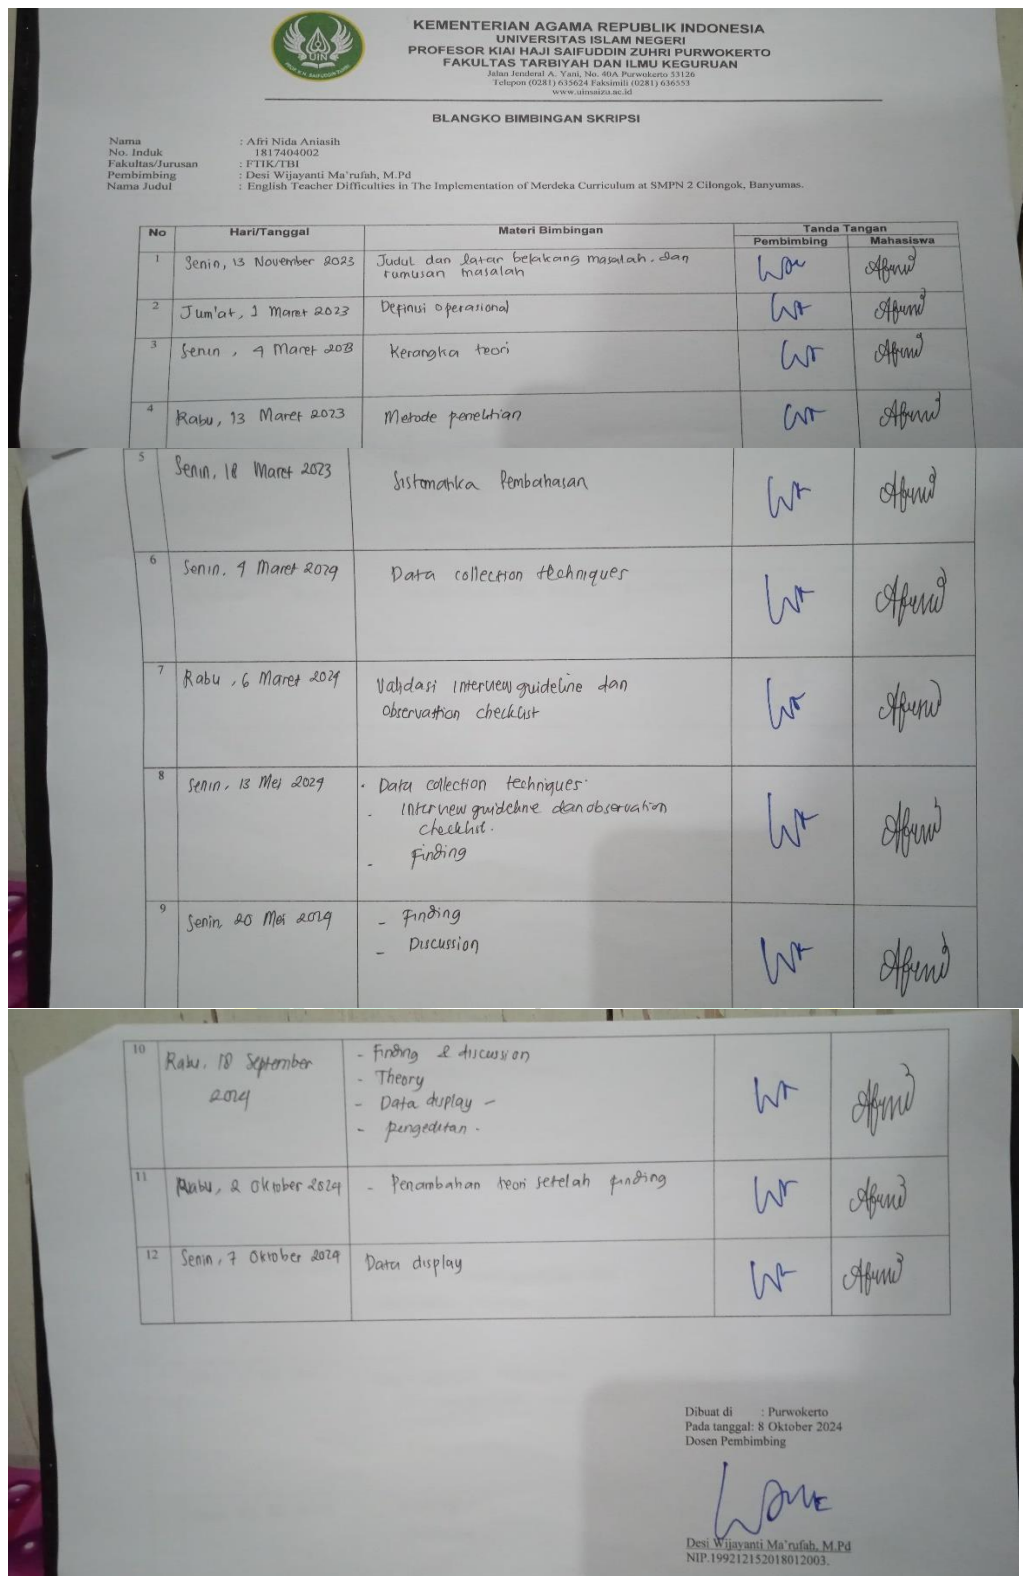 KEMENTERIAN AGAMA REPUBLIK INDONESIA
UNIVERSITAS ISLAM NEGERI
PROFESOR KIAI HAJI SAIFUDDIN ZUHRI PURWOKERTO
FAKULTAS TARBIYAH DAN ILMU KEGURUAN
Jalan Jenderal A. Yani, No. 40A Purwokerto 53126
Telepon (0281) 635624 Faksimili (0281) 636553
www.uinsaizu.ac.id
UIN
BLANGKO BIMBINGAN SKRIPSI
Nama : Afri Nida Aniasih
No. Induk 1817404002
Fakultas/Jurusan : FTIK/TBI
Pembimbing : Desi Wijayanti Ma'rufah, M.Pd
Nama Judul : English Teacher Difficulties in The Implementation of Merdeka Curriculum at SMPN 2 Cilongok, Banyumas.
No Hari/Tanggal Materi Bimbingan Tanda Tangan
Pembimbing Mahasiswa
1 Senin, 13 November 2023 Judul dan latar belakang masalah. dan
rumusan masalah
2 Jum'at, 1 Maret 2023 Definisi operasional
3 Senin, 4 Maret 2023 Kerangka teori
4 Rabu, 13 Maret 2023 Metode penelitian
5 Senin, 18 Maret 2023 Sistematika Pembahasan
6 Senin, 4 Maret 2024 Data collection techniques
7 Rabu, 6 Maret 2024 Validasi interview guideline dan
observation checklist
8 Senin, 13 Mei 2024 - Data collection techniques
- Interview guideline dan observation
checklist.
- Finding
9 Senin 20 Mei 2024 - Finding
- Discussion
10 Rabu, 18 September - Finding & discussion
2024 - Theory
- Data display -
- pengeditan.
11 Rabu, 2 Oktober 2024 - Penambahan teori setelah finding
12 Senin, 7 Oktober 2024 Data display
Dibuat di : Purwokerto
Pada tanggal: 8 Oktober 2024
Dosen Pembimbing
Desi Wijayanti Ma'rufah, M.Pd
NIP.199212152018012003.